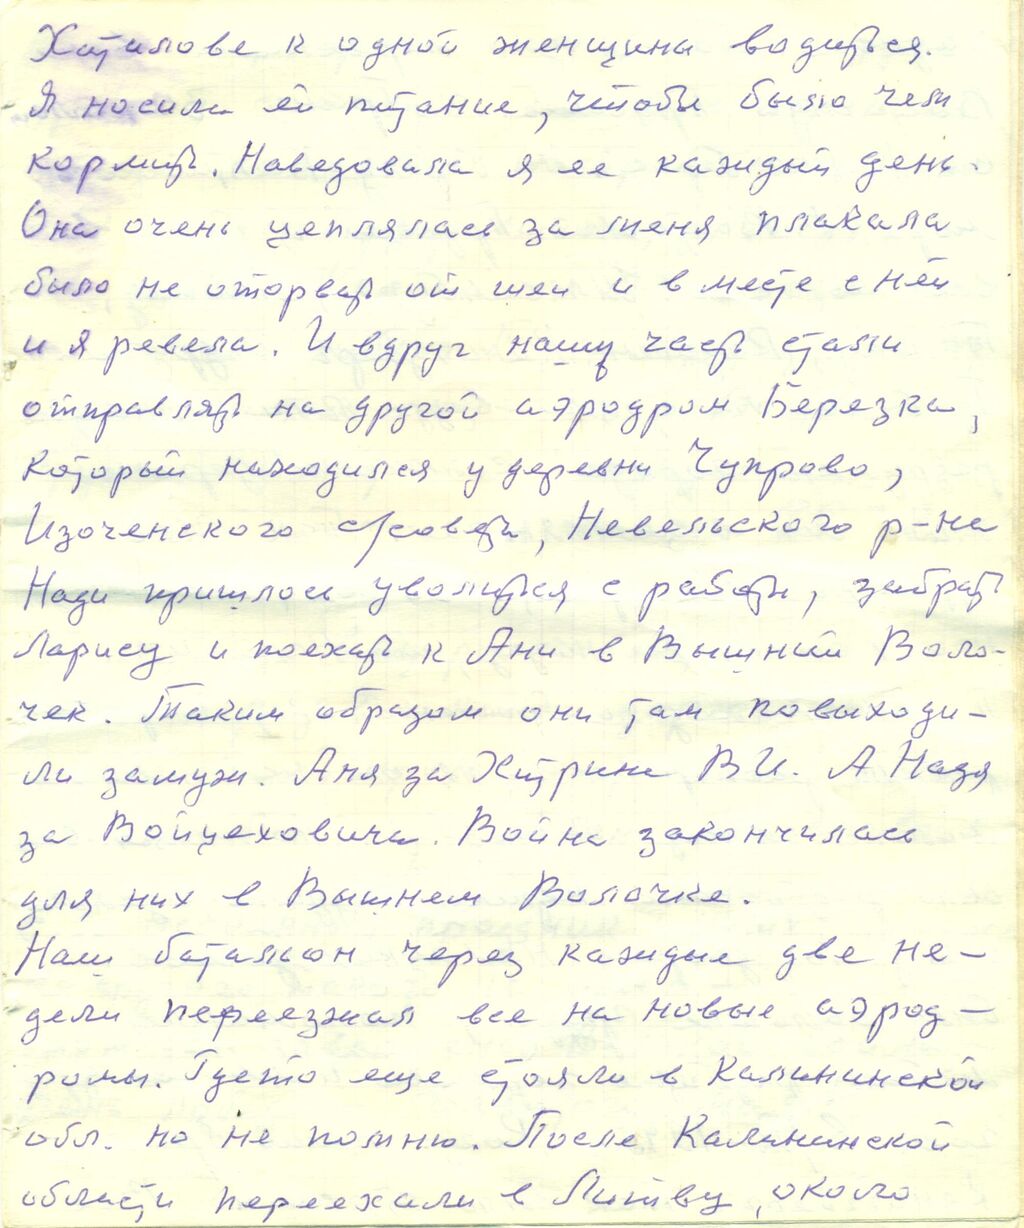 Хотилове к одной женщины водиться.
Я носила ей питание, чтобы было чем
кормить. Наведовала я ее каждый день.
Она очень цеплялась за меня плакала
было не оторвать от шеи и в месте с ней
и я ревела. И вдруг нашу часть стали
отправлять на другой аэродром Березка,
который находился у деревни Чупрово,
Изоченского с/совета, Невельского р-на
Нади пришлось уволиться с работы, забрать
Ларису и поехать к Ани в Вышний Воло-
чек. Таким образом они там повыходи-
ли замуж. Аня за Хитрина В.И. А Надя
за Войцеховича. Война закончилась
для них в Вышнем Волочке.
Наш батальон через каждые две не-
дели переезжал все на новые аэрод-
ромы. Где то еще стояли в Калининской
обл. но не помню. После Калининской
области переехали в Литву, около